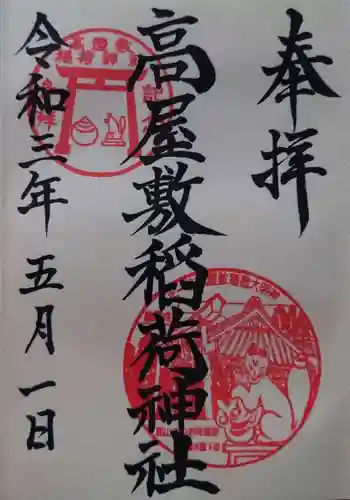 奉拝
高屋敷稲荷神社
令和三年 五月一日